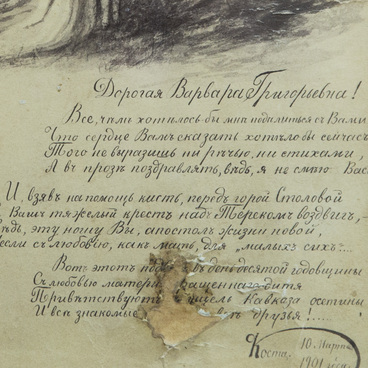 Дорогая Варвара Григорьевна!
Все, чѣмъ хотѣлось бы мнѣ подѣлиться съ Вами,
Что сердце Вамъ сказать хотѣло бы сейчасъ
Того не выразишь ни рѣчью, ни стихами,
А въ прозѣ поздравлять, вѣдь, я не смѣю Васъ
И, взявъ на помощь кисть, передъ горой Столовой
Вашъ тяжелый крестъ надъ Терекомъ воздвигъ,
вѣдь, эту ношу Вы, апостолъ жизни новой,
если съ любовью, какъ мать, для „малыхъ сихъ"...
Вотъ этотъ въ день десятой годовщины
Съ любовью матери дитя
Привѣтствуютъ Кавказа осетины
И всѣ знакомые друзья!.....
Коста.
10. Марта
1901 года